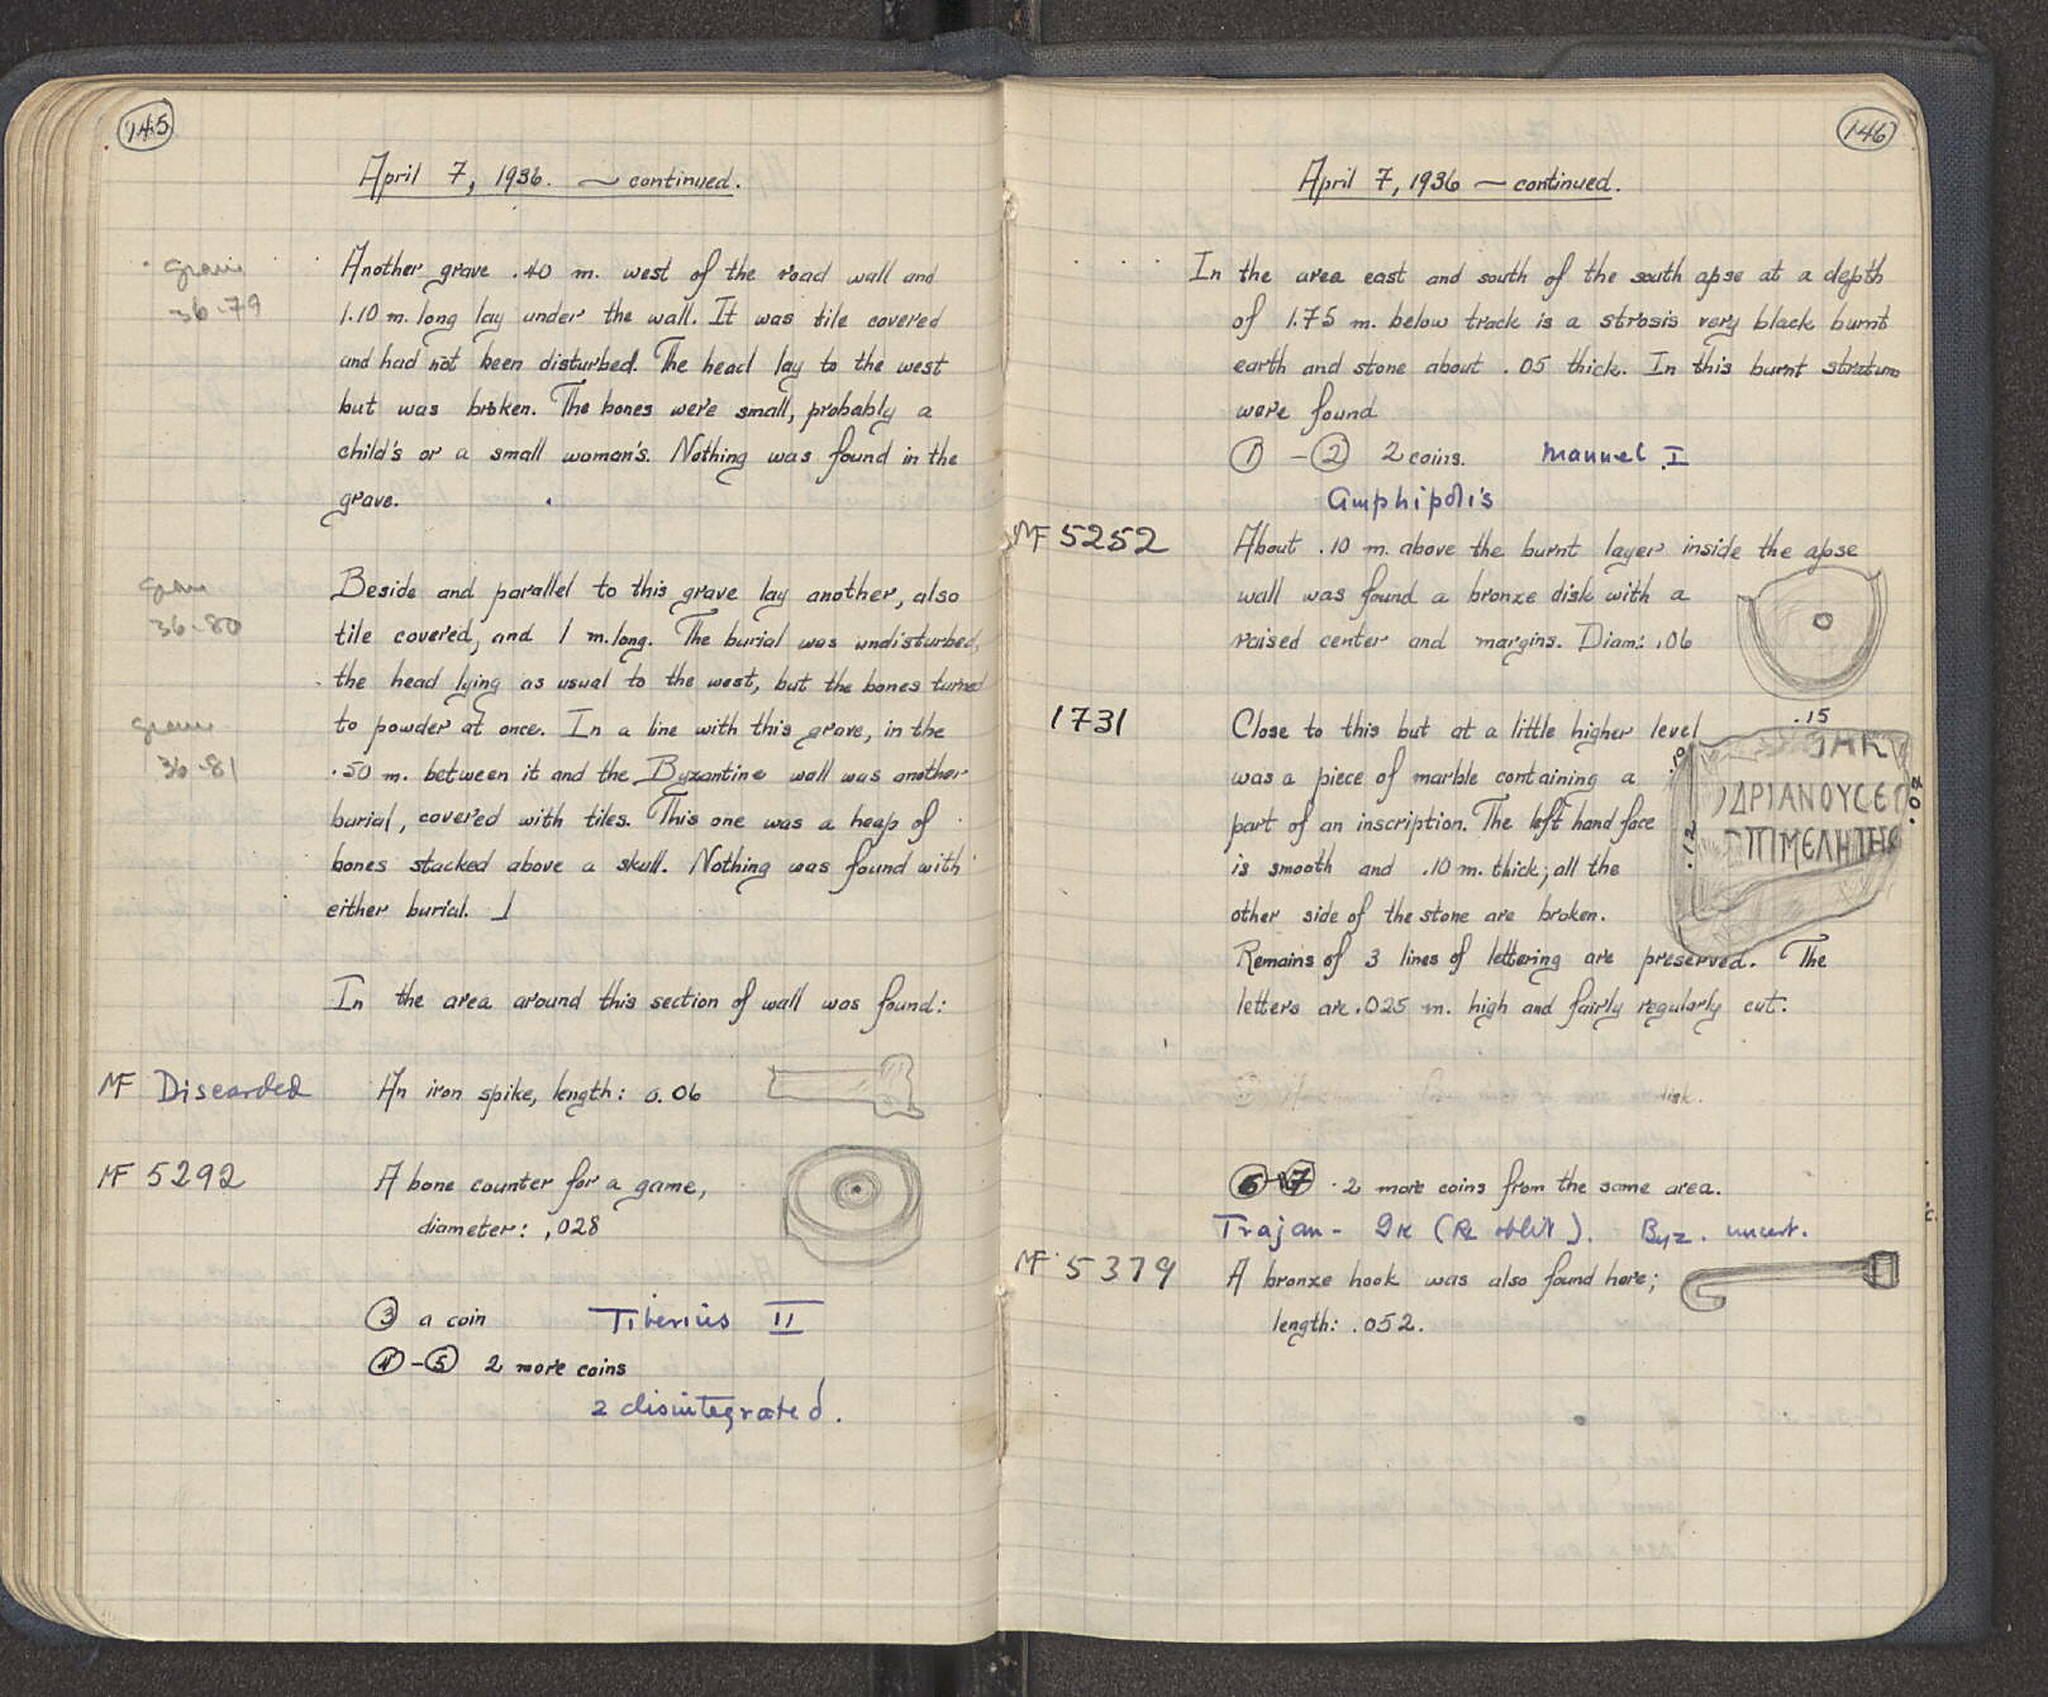 145
April 7, 1936. — continued.
grave
36-79
Another grave .40 m. west of the road wall and
1.10 m. long lay under the wall. It was tile covered
and had not been disturbed. The head lay to the west
but was broken. The bones were small, probably a
child's or a small woman's. Nothing was found in the
grave.
grave
36-80
Beside and parallel to this grave lay another, also
tile covered, and 1 m. long. The burial was undisturbed,
the head lying as usual to the west, but the bones turned
grave
36-81
to powder at once. In a line with this grave, in the
.50 m. between it and the Byzantine wall was another
burial, covered with tiles. This one was a heap of
bones stacked above a skull. Nothing was found with
either burial. ⅃
In the area around this section of wall was found:
MF Discarded An iron spike, length: 0.06
MF 5292 A bone counter for a game,
diameter: ,028
③ a coin Tiberius II
④-⑤ 2 more coins
2 disintegrated.
146
April 7, 1936 — continued.
In the area east and south of the south apse at a depth
of 1.75 m. below track is a strosis very black burnt
earth and stone about .05 thick. In this burnt stratum
were found
① - ② 2 coins. Manuel I
Amphipolis
MF 5252 About .10 m. above the burnt layer inside the apse
wall was found a bronze disk with a
raised center and margins. Diam: .06
1731 Close to this but at a little higher level
was a piece of marble containing a
part of an inscription. The left hand face
is smooth and .10 m. thick; all the
other side of the stone are broken.
Remains of 3 lines of lettering are preserved. The
letters are .025 m. high and fairly regularly cut.
.15
.10
.12
.04
ΔΡΙΑΝΟΥСΕΠ
ΠΙΜΕΛΗΤΗС
disk.
⑥-⑦ 2 more coins from the same area.
Trajan - Dk (R oblit). Byz. uncert.
MF 5379 A bronze hook was also found here;
length: .052.